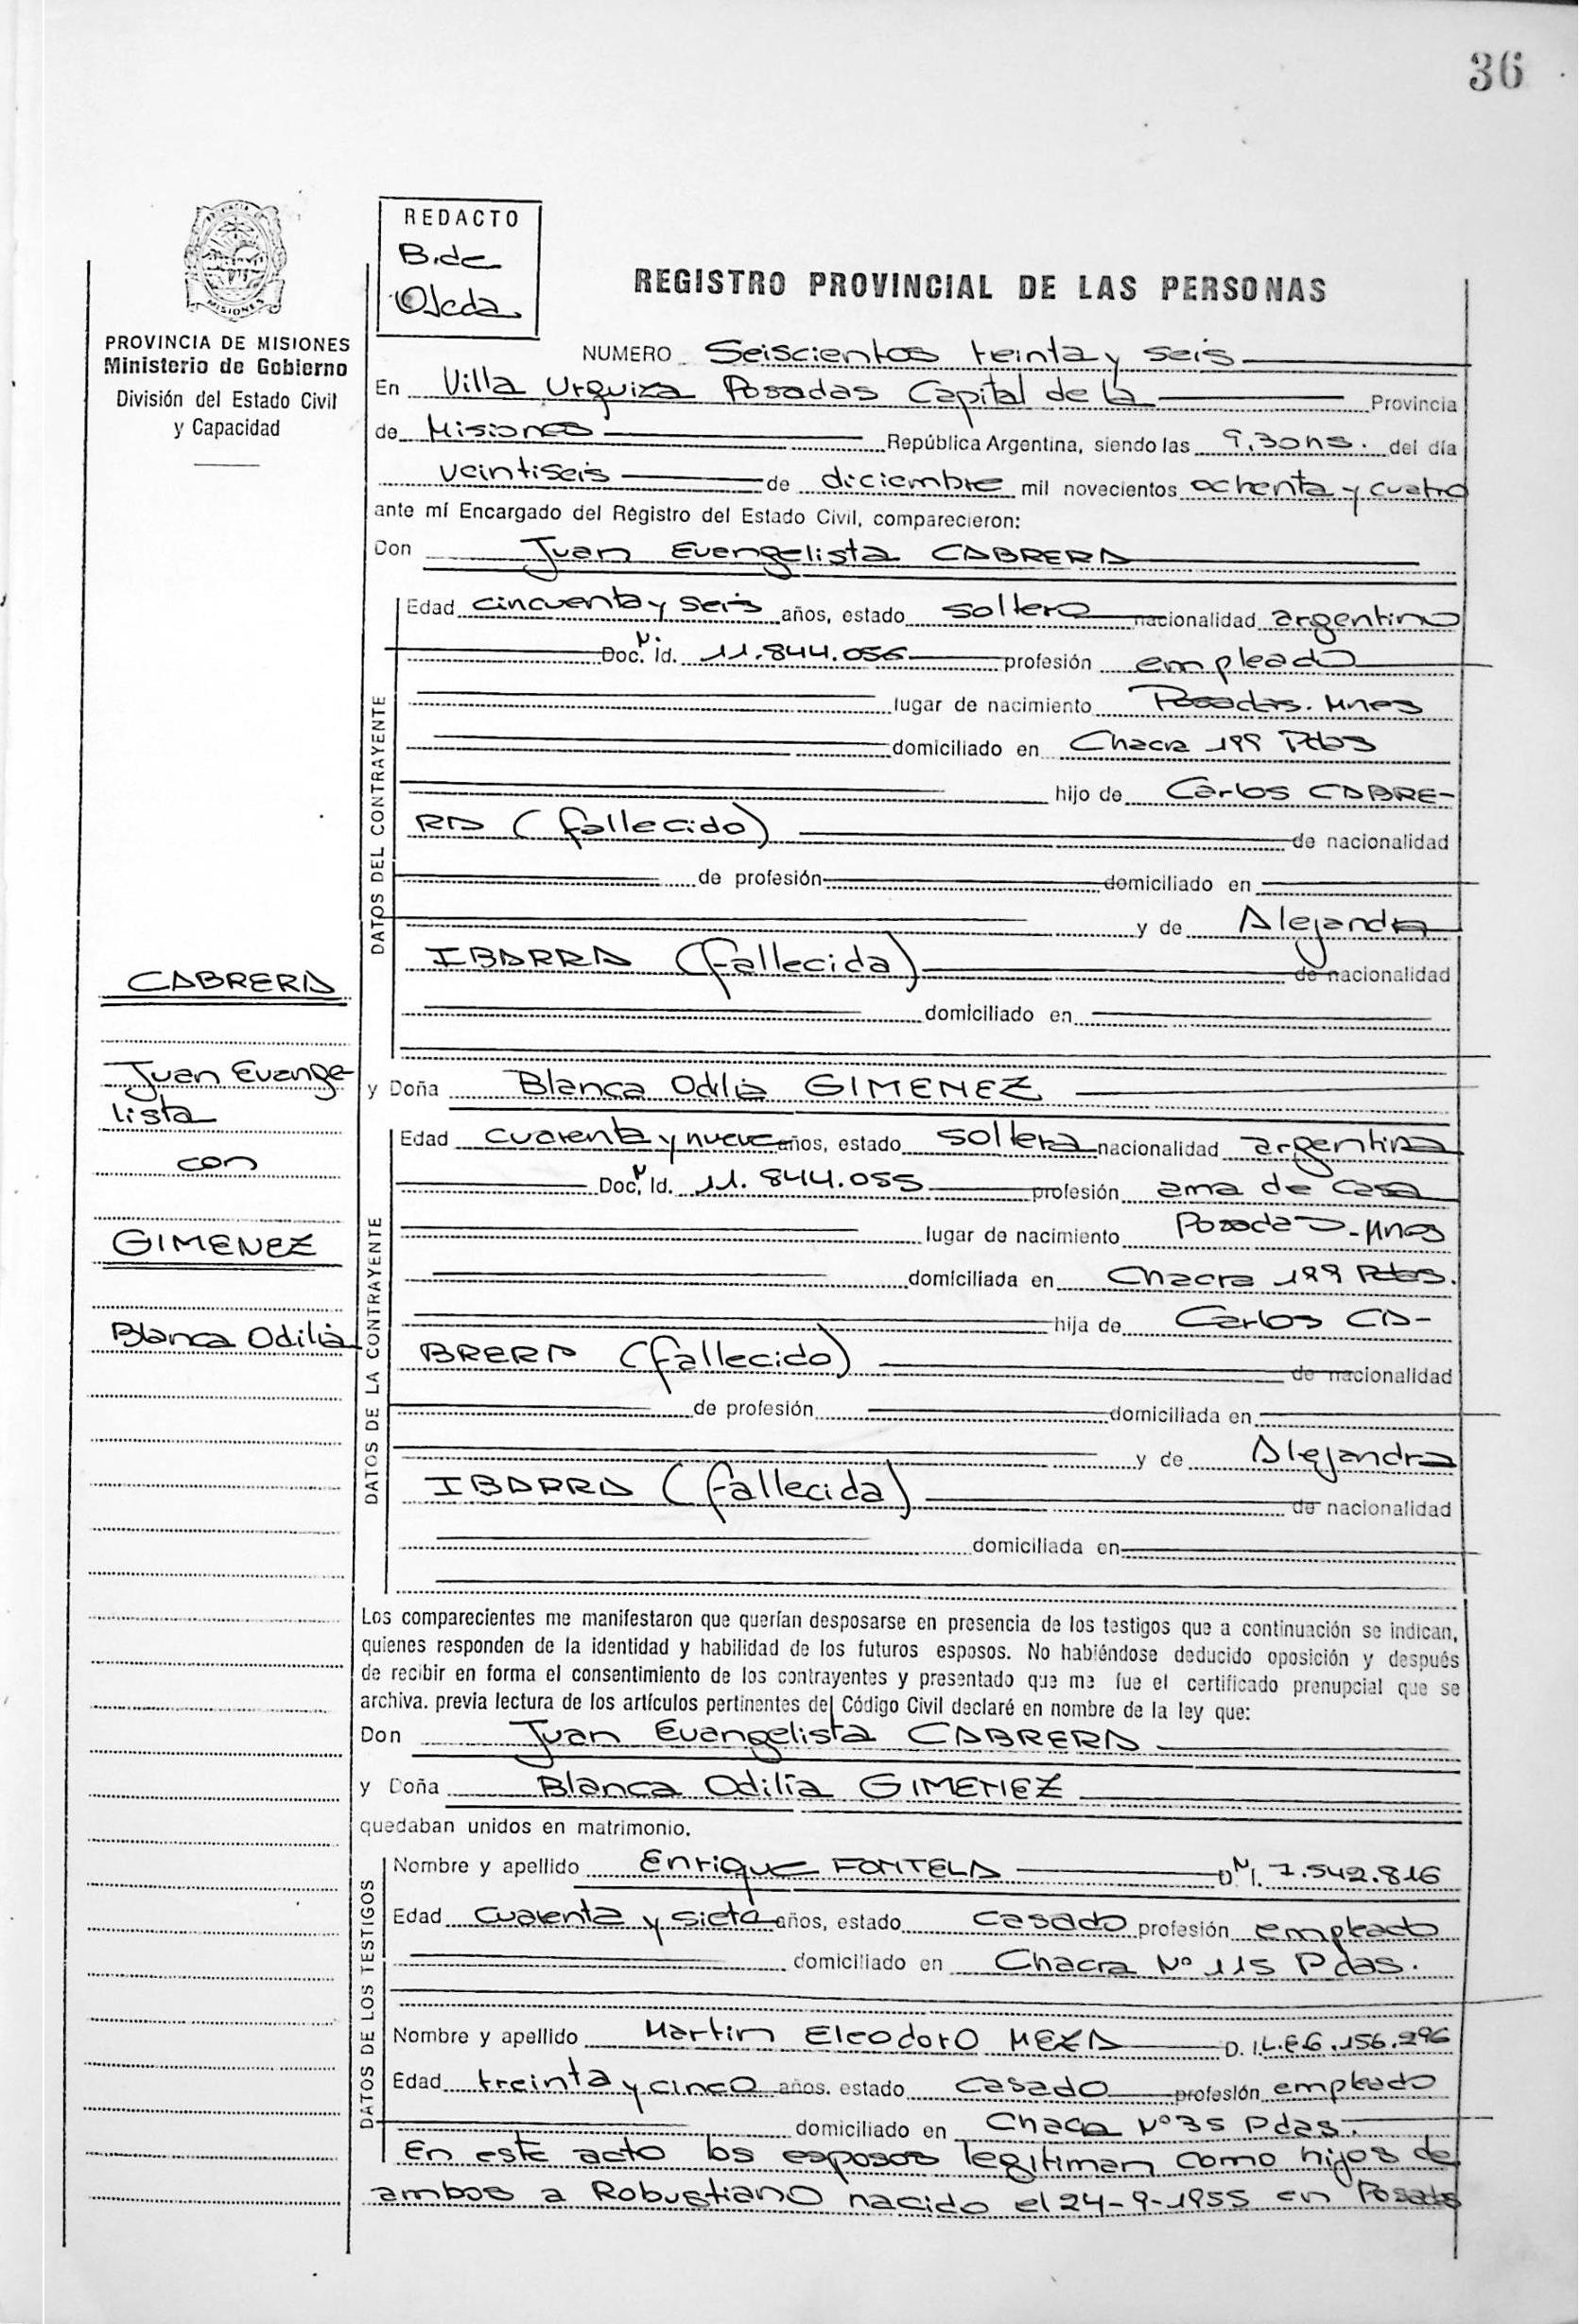 36
REDACTO
B. de
Ojeda
REGISTRO PROVINCIAL DE LAS PERSONAS
PROVINCIA DE MISIONES
Ministerio de Gobierno
División del Estado Civil
y Capacidad
NUMERO Seiscientos treinta y seis
En Villa Urquiza Posadas Capital de la Provincia
de Misiones República Argentina, siendo las 9,30 hs. del día
veintiseis de diciembre mil novecientos ochenta y cuatro
ante mí Encargado del Registro del Estado Civil, comparecieron:
Don Juan Evangelista CABRERA
DATOS DEL CONTRAYENTE
Edad cincuenta y seis años, estado soltero nacionalidad argentino
Doc. N. Id. 11.844.056 profesión empleado
lugar de nacimiento Posadas. Mnes
domiciliado en Chacra 199 Pdas
hijo de Carlos CABRE-
RA (fallecido) de nacionalidad
de profesión domiciliado en
y de Alejandra
IBARRA (fallecida) de nacionalidad
domiciliado en
CABRERA
Juan Evange-
lista
con
GIMENEZ
Blanca Odilia
y Doña Blanca Odilia GIMENEZ
DATOS DE LA CONTRAYENTE
Edad cuarenta y nueve años, estado soltera nacionalidad argentina
Doc. N. Id. 11.844.055 profesión ama de casa
lugar de nacimiento Posadas - Mnes
domiciliada en Chacra 199 Pdas.
hija de Carlos CA-
BRERA (fallecido) de nacionalidad
de profesión domiciliada en
y de Alejandra
IBARRA (fallecida) de nacionalidad
domiciliada en
Los comparecientes me manifestaron que querían desposarse en presencia de los testigos que a continuación se indican,
quienes responden de la identidad y habilidad de los futuros esposos. No habiéndose deducido oposición y después
de recibir en forma el consentimiento de los contrayentes y presentado que me fue el certificado prenupcial que se
archiva. previa lectura de los artículos pertinentes del Código Civil declaré en nombre de la ley que:
Don Juan Evangelista CABRERA
y Doña Blanca Odilia GIMENEZ
quedaban unidos en matrimonio.
DATOS DE LOS TESTIGOS
Nombre y apellido Enrique FONTELA D.N.I. 7.542.816
Edad cuarenta y siete años, estado casado profesión empleado
domiciliado en Chacra Nº 115 Pdas.
Nombre y apellido Martin Eleodoro MEZA D. I. L.E. 6.156.296
Edad treinta y cinco años. estado casado profesión empleado
domiciliado en Chaca Nº 35 Pdas.
En este acto los esposos legitiman como hijos de
ambos a Robustiano nacido el 24-9-1955 en Posadas